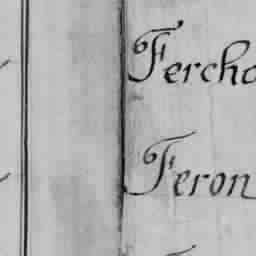 Fercho
Feron